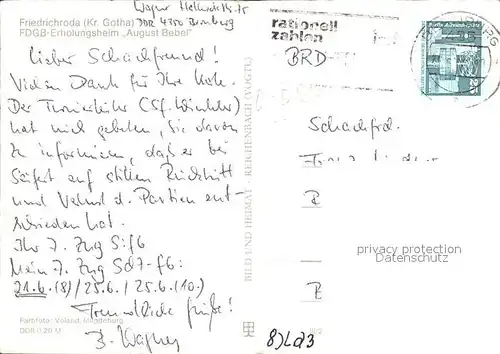 Wagner
DDR 4350 Bernburg
Friedrichroda (Kr. Gotha)
FDGB-Erholungsheim „August Bebel"
Lieber Schachfreund!
Vielen Dank für Ihre Karte.
Der Turnierleiter (Sf. Winkler)
hat mich gebeten, Sie davon
zu informieren, daß er bei
Seifert auf stillen Rücktritt
und Verlust d. Partien ent-
schieden hat.
Ihr 7. Zug
Mein 7. Zug Sd7-f6:
21.6. (8) / 25.6. / 25.6. (10.)
Freundliche Grüße!
Wagner
Farbfoto: Voland, Magdeburg
BILD UND HEIMAT REICHENBACH (VOGTL)
rationell
zahlen
BRD
Schachfrd.
privacy protection
Datenschutz
8) Ld3